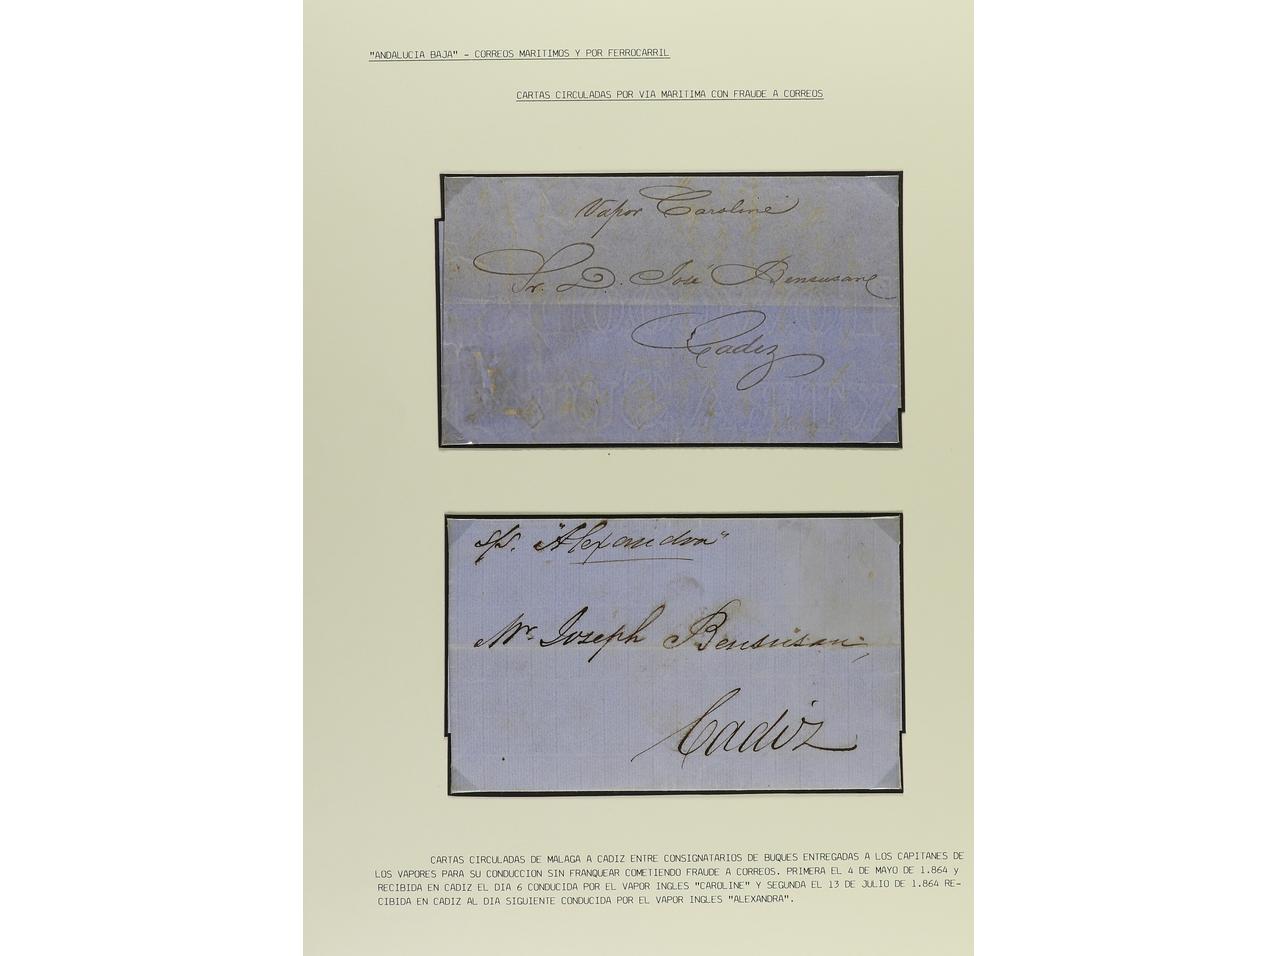 "ANDALUCIA BAJA" - CORREOS MARITIMOS Y POR FERROCARRIL
CARTAS CIRCULADAS POR VIA MARITIMA CON FRAUDE A CORREOS
Vapor Caroline
Sr. D. José Bensusan
Cadiz
"Alexandra"
Mr. Joseph Bensusan
Cadiz
CARTAS CIRCULADAS DE MALAGA A CADIZ ENTRE CONSIGNATARIOS DE BUQUES ENTREGADAS A LOS CAPITANES DE
LOS VAPORES PARA SU CONDUCCION SIN FRANQUEAR COMETIENDO FRAUDE A CORREOS. PRIMERA EL 4 DE MAYO DE 1.864 y
RECIBIDA EN CADIZ EL DIA 6 CONDUCIDA POR EL VAPOR INGLES "CAROLINE" Y SEGUNDA EL 13 DE JULIO DE 1.864 RE-
CIBIDA EN CADIZ AL DIA SIGUIENTE CONDUCIDA POR EL VAPOR INGLES "ALEXANDRA".